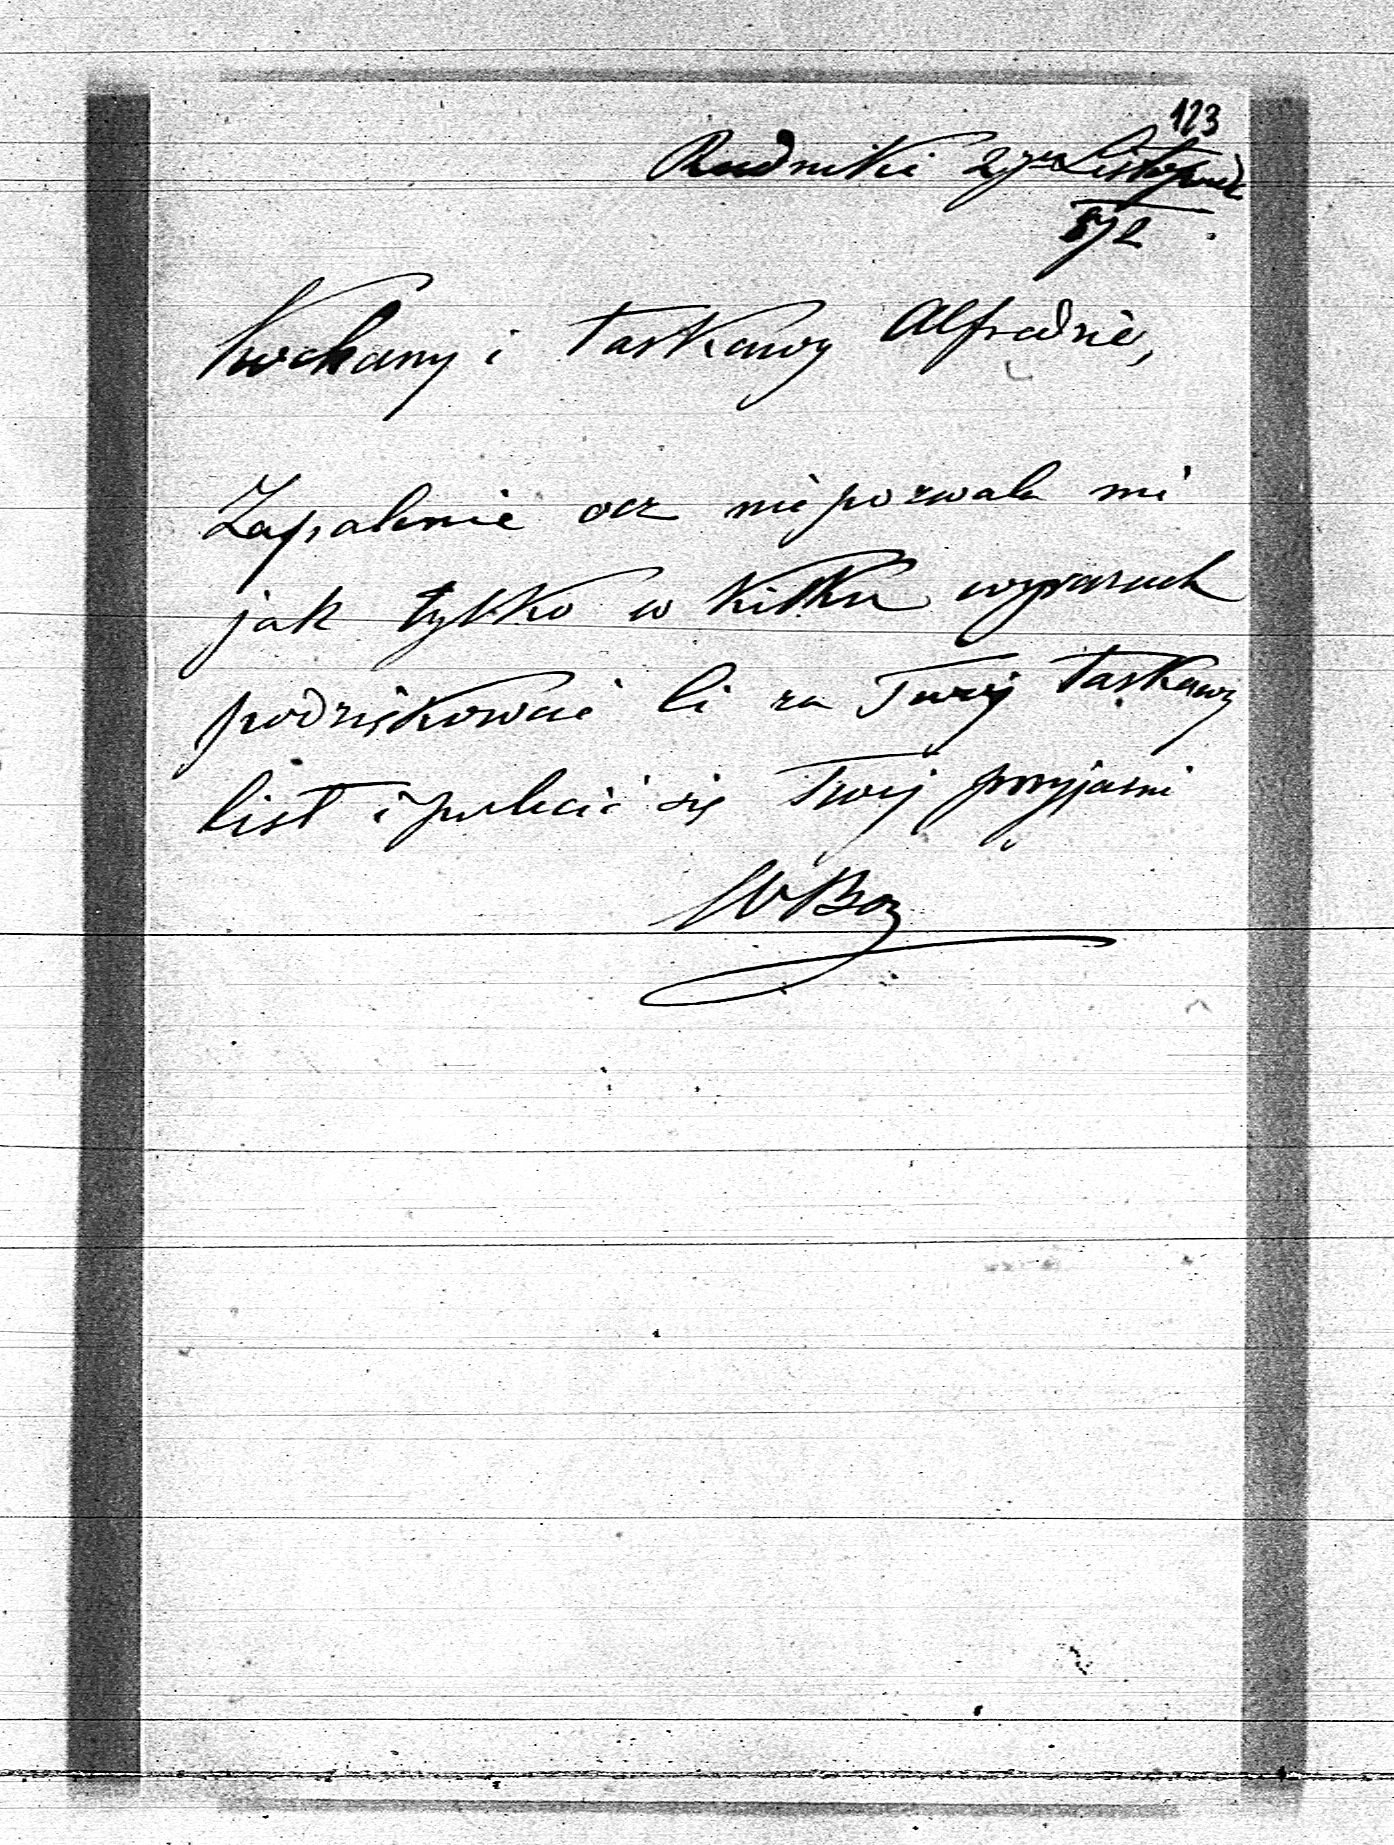 123
Rudniki 27go Listopad
872
Kochany i łaskawy Alfredzie,
Zapalenie ocz nie pozwala mi
jak tylko w kilku wyrazach
podziękować Ci za Twój łaskawy
list i polecić się Twój przyjaźni
WBoz